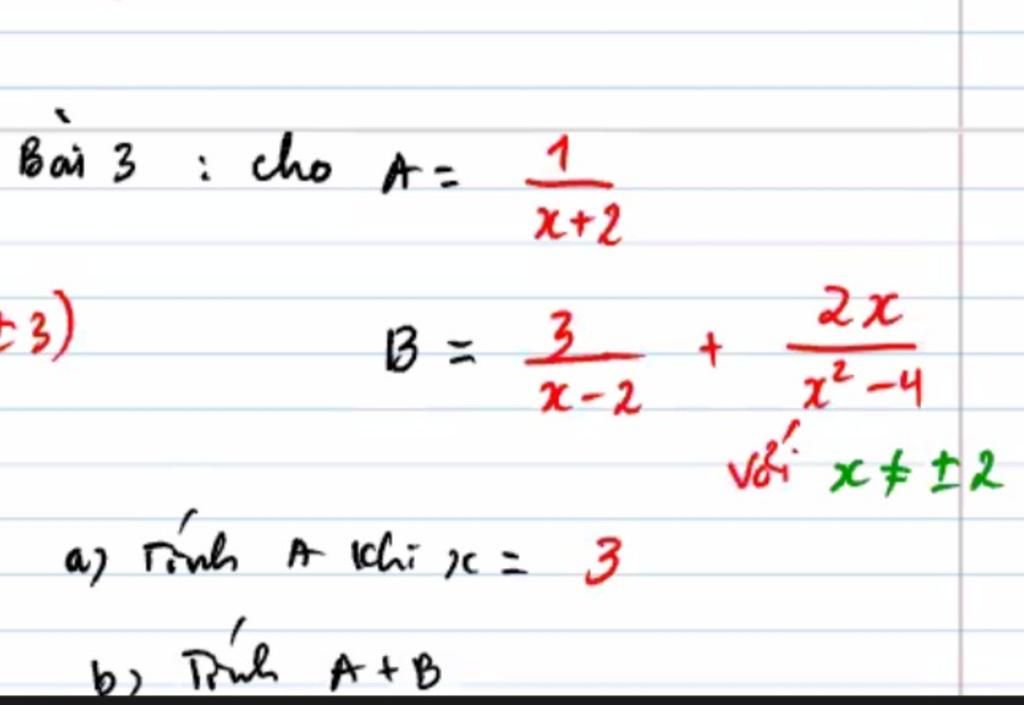 Bài 3 : cho A = 1/(x+2)
± 3)
B = 3/(x-2) + 2x/(x² - 4)
với x ≠ ± 2
a) Tính A khi x = 3
b) Tính A + B